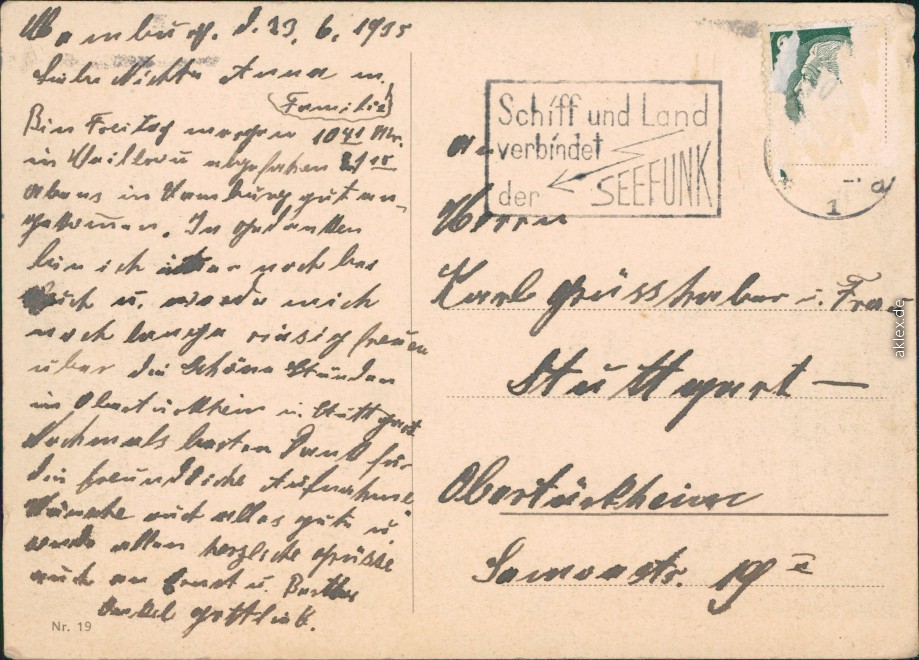 Hamburg. d. 23. 6. 1935
Liebe Nichte Anna u.
Familie
Bin Freitag morgen 10 41 Uhr.
in abgefahren
abens in Hamburg gut an-
gekommen. In Gedanken
bin ich immer noch bei
Euch u. werde mich
noch lange riesig freuen
über die schöne Stunden
in Obertürkheim u. Stuttgart
Nochmals besten Dank für
die freundliche Aufnahme
Wünsche euch alles gute u
sende allen herzliche Grüsse
auch an Ernst u. Bertha
Onkel Gottlieb.
Nr. 19
Schiff und Land
verbindet
der SEEFUNK
1
an
Herrn
Karl Grüsshaber u. Fra
Stuttgart —
Obertürkheim
Samoastr. 19
aklex.de